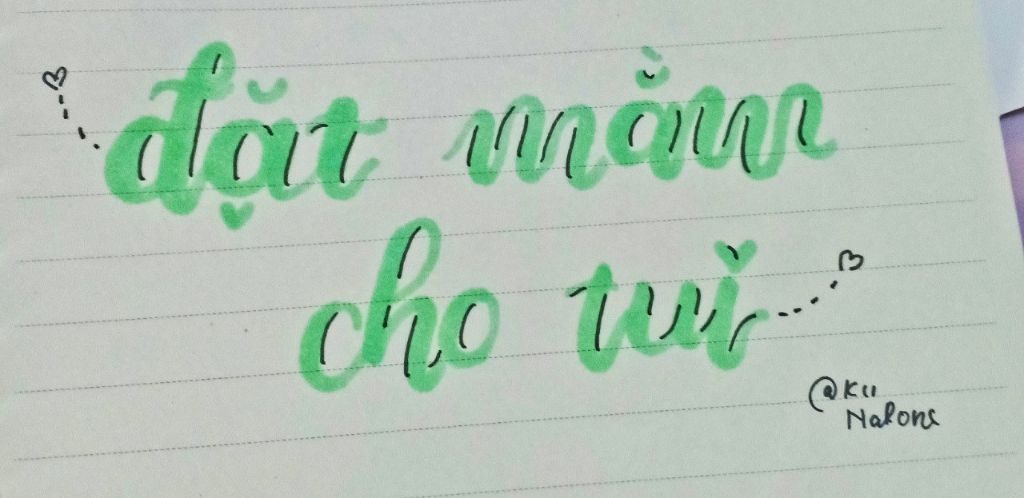 đặt mằm
cho tui
@Kii
Nalone